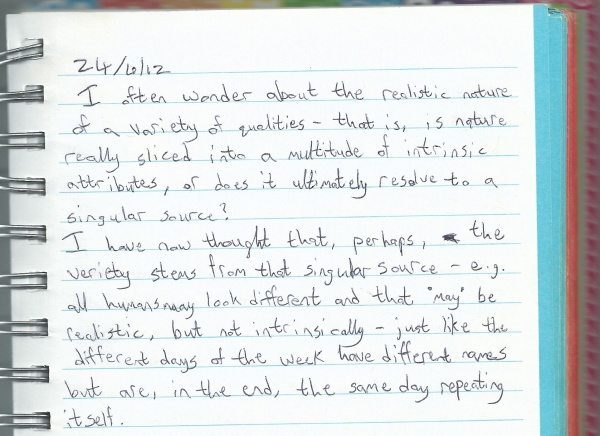 24/6/12
I often wonder about the realistic nature
of a variety of qualities - that is, is nature
really sliced into a multitude of intrinsic
attributes, or does it ultimately resolve to a
singular source?
I have now thought that, perhaps, the
variety stems from that singular source - e.g.
all humans may look different and that "may" be
realistic, but not intrinsically - just like the
different days of the week have different names
but are, in the end, the same day repeating
itself.